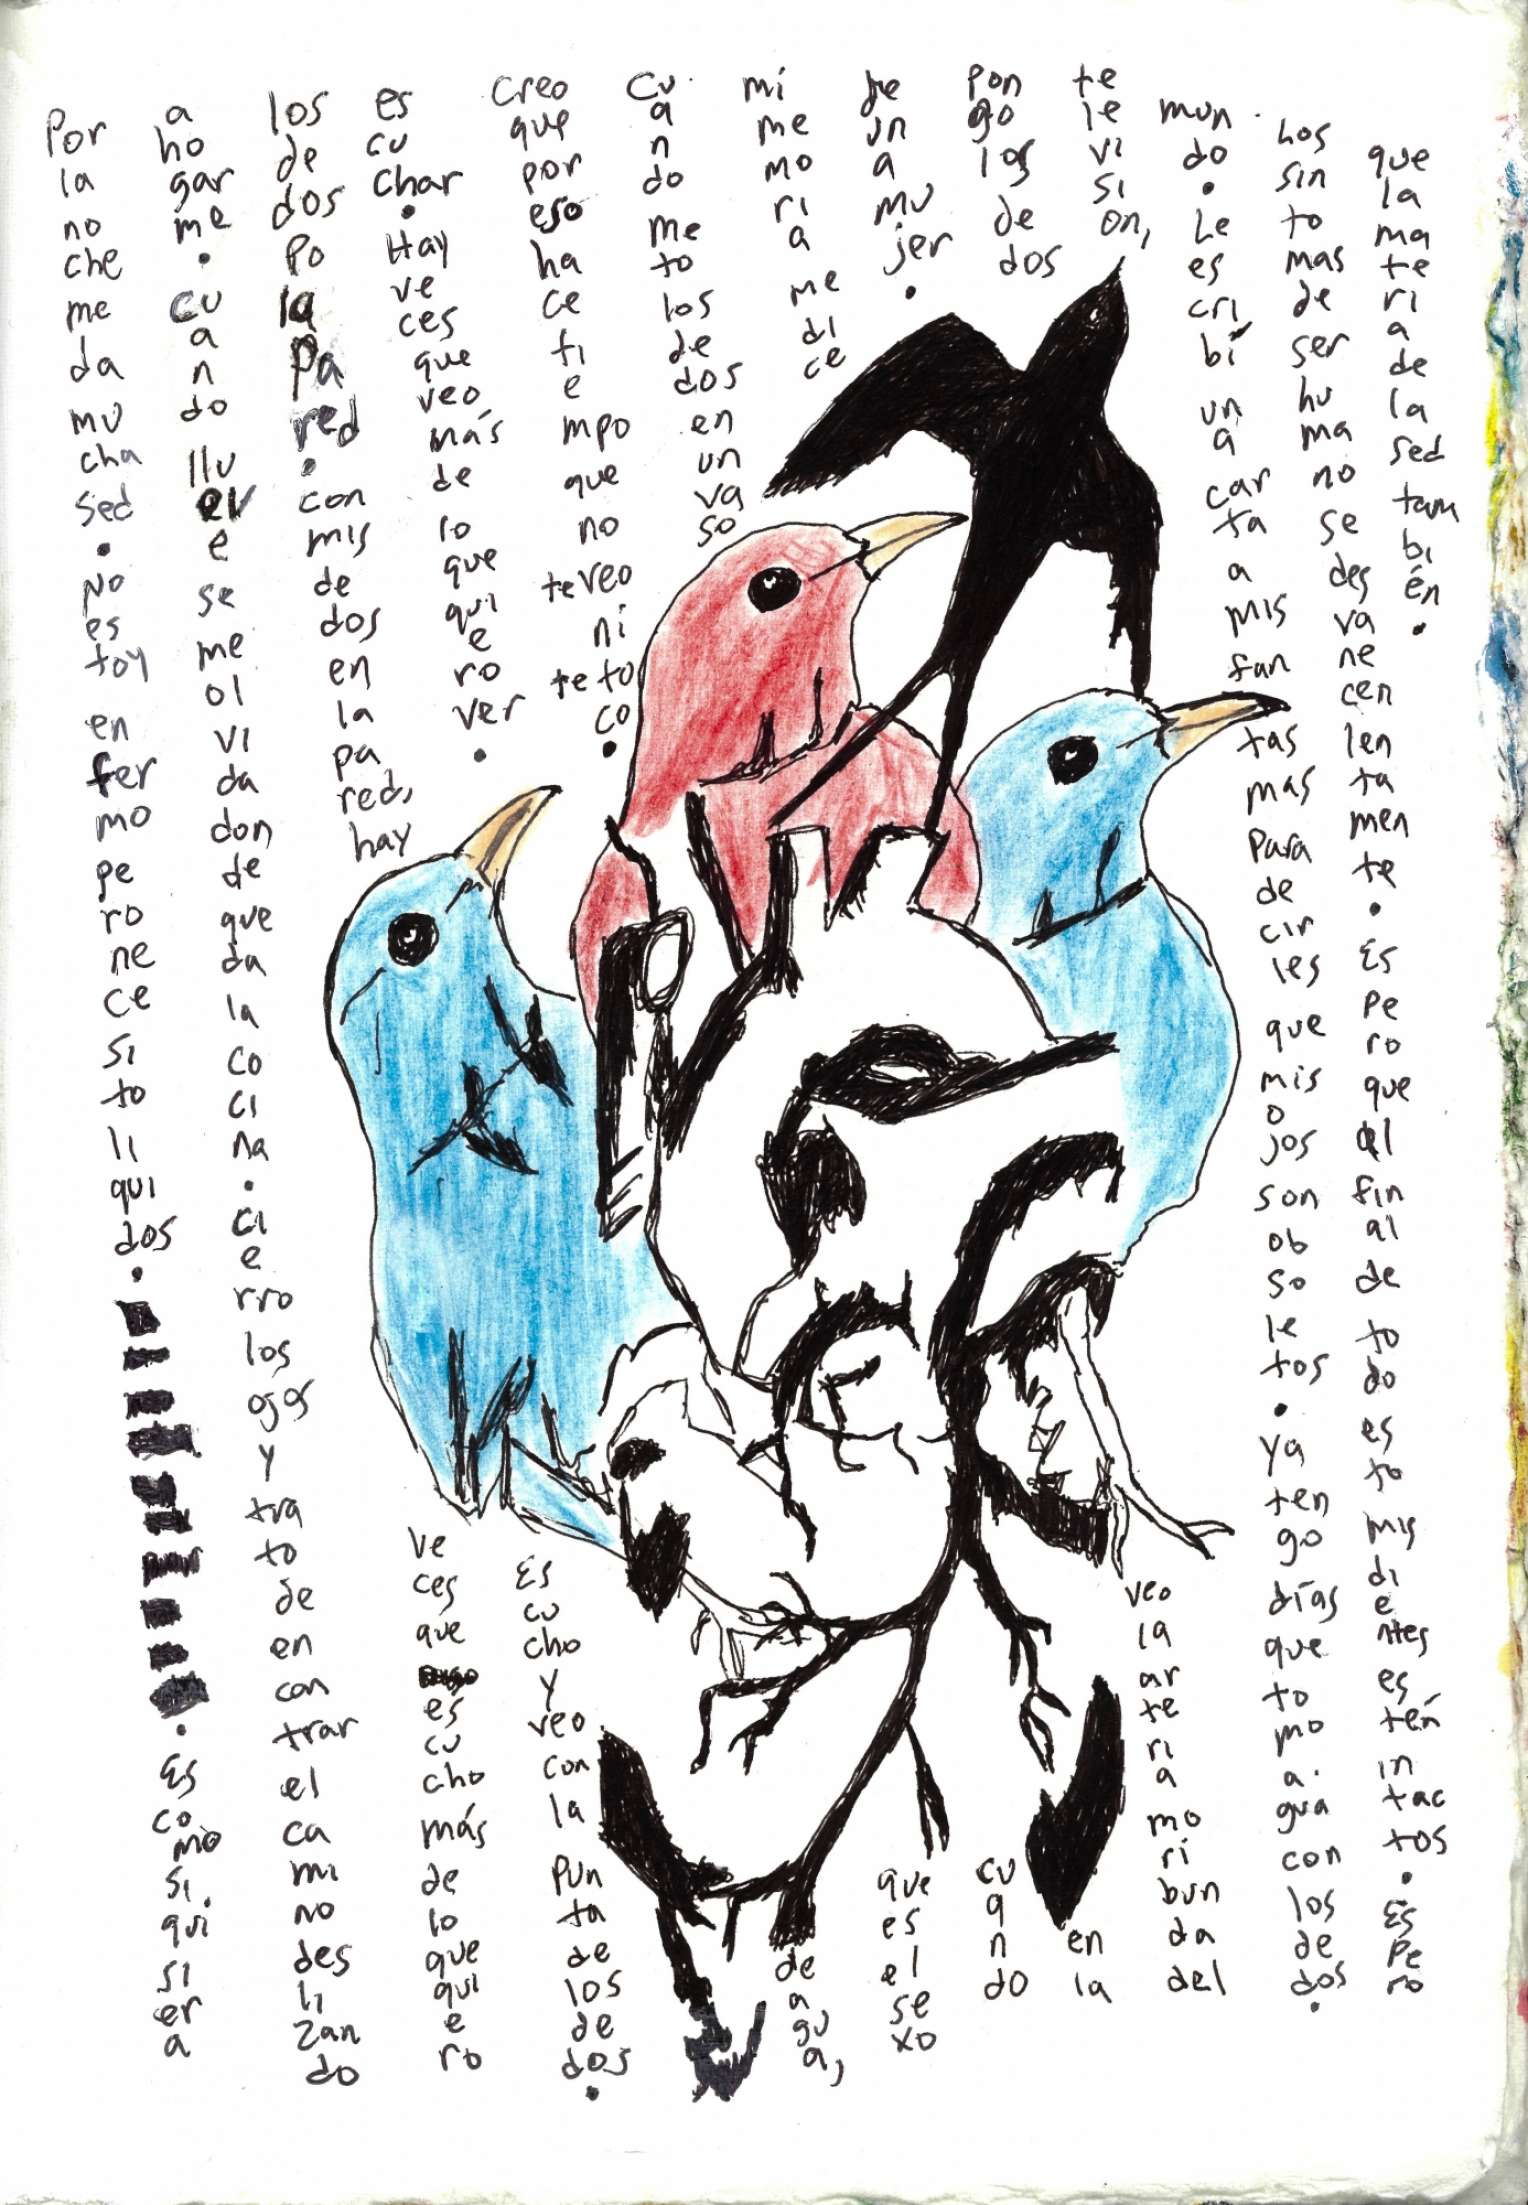 Por la noche me da mucha sed. No estoy enfermo pero necesito liquidos. Es como si quisiera
ahogarme. cuando llueve se me olvida donde queda la cocina. cierro los ojos y trato de encontrar el camino deslizando
los dedos Po la Pared. con mis dedos en la pared, hay
veces que escucho más de lo que quiero
escuchar. Hay veces que veo más de lo que quiero ver.
Escucho y veo con la punta de los dedos.
Creo que por eso hace tiempo que no te veo ni te toco.
Cuando meto los dedos en un vaso
de agua,
mi memoria me dice
que es el sexo
de una mujer.
cuando
pongo los dedos
en la
television,
veo la arteria moribunda del
mundo. Le escribí una carta a mis fantasmas para decirles que mis ojos son obsoletos. Ya tengo días que tomo agua con los dedos.
Los sintomas de ser humano se desvanecen lentamente. Espero que al final de todo esto mis dientes estén intactos. Espero
que la materia de la sed también.